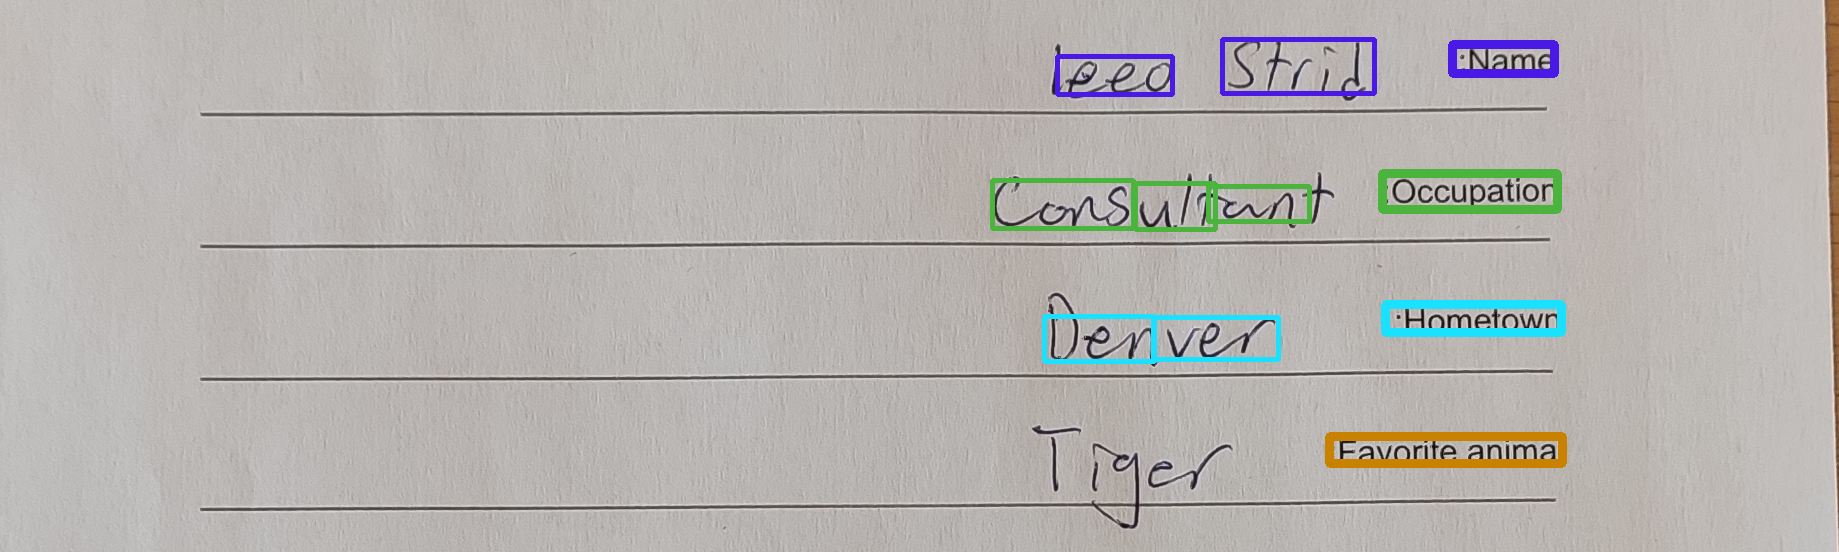 leeo Strid :Name
Consultant :Occupation
Denver :Hometown
Tiger Favorite anima